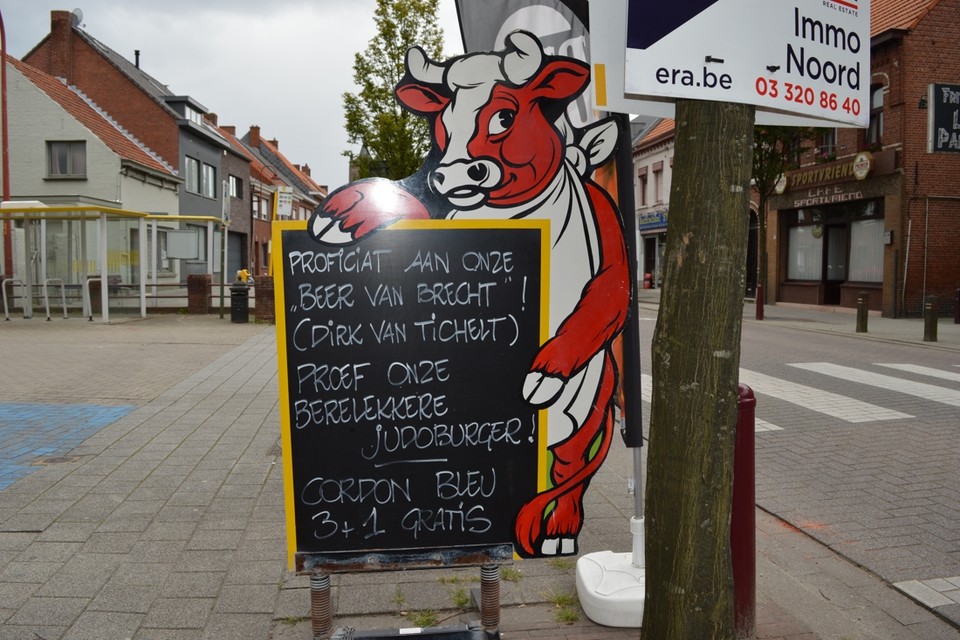 PROFICIAT AAN ONZE
„BEER VAN BRECHT" !
(DIRK VAN TICHELT)
PROEF ONZE
BERELEKKERE
JUDOBURGER!
CORDON BLEU
3+1 GRATIS
REAL ESTATE
Immo
Noord
era.be
03 320 86 40
SPORTVRIEND
CAFE
SPORTVRIEND